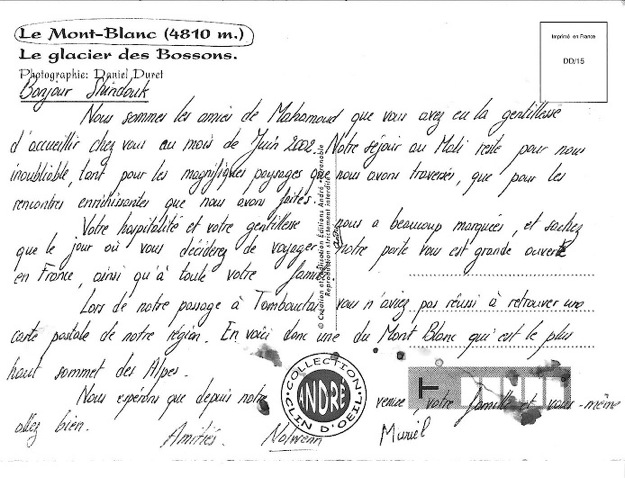 Le Mont-Blanc (4810 m.)
Le glacier des Bossons.
Photographie: Daniel Duret
Imprimé en France
DD/15
Bonjour Shindouk
Nous sommes les amies de Mahamoud que vous avez eu la gentillesse
d'accueillir chez vous au mois de Juin 2002. Notre séjour au Mali reste pour nous
inoubliable, tant pour les magnifiques paysages que nous avons traversés, que pour les
rencontres enrichissantes que nous avons faites.
Votre hospitalité et votre gentillesse nous a beaucoup marquées, et sachez
que le jour où vous déciderez de voyager notre porte vous est grande ouverte
en France, ainsi qu'à toute votre famille
Lors de notre passage à Tombouctou vous n'aviez pas réussi à retrouver une
carte postale de notre région. En voici donc une du Mont Blanc qui est le plus
haut sommet des Alpes.
Nous espérons que depuis notre venue, votre famille et vous-même
allez bien.
Amitiés. Nolwenn Muriel
© Création et réalisation Editions André
Reproduction strictement interdite
COLLECTION
ANDRÉ
CLIN D'OEIL
T